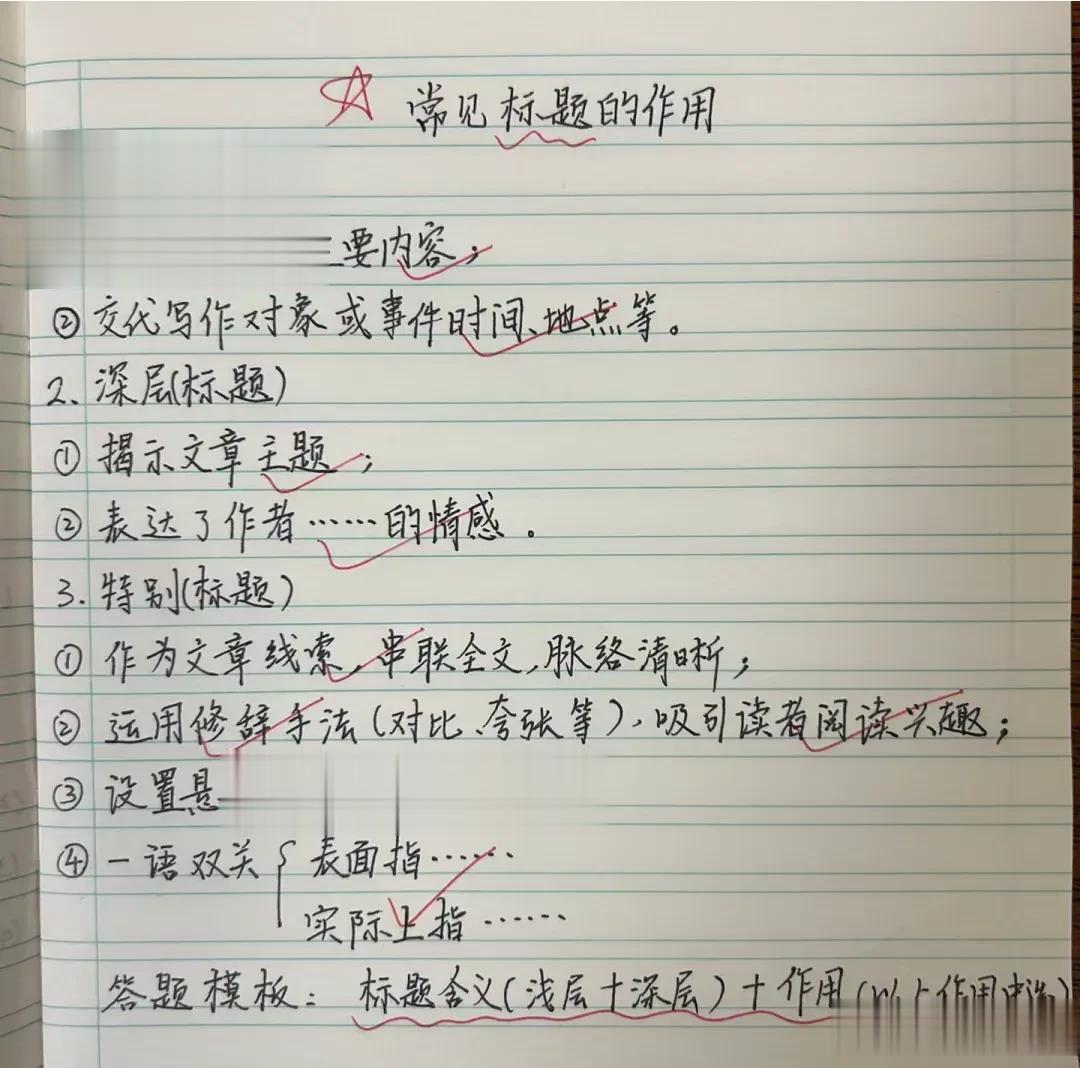 常见标题的作用
要内容；
② 交代写作对象或事件时间、地点等。
2. 深层(标题)
① 揭示文章主题；
② 表达了作者……的情感。
3. 特别(标题)
① 作为文章线索，串联全文，脉络清晰；
② 运用修辞手法(对比、夸张等)，吸引读者阅读兴趣；
③ 设置悬
④ 一语双关{表面指……
实际上指……
答题模板：标题含义(浅层+深层)+作用(以上作用中选)